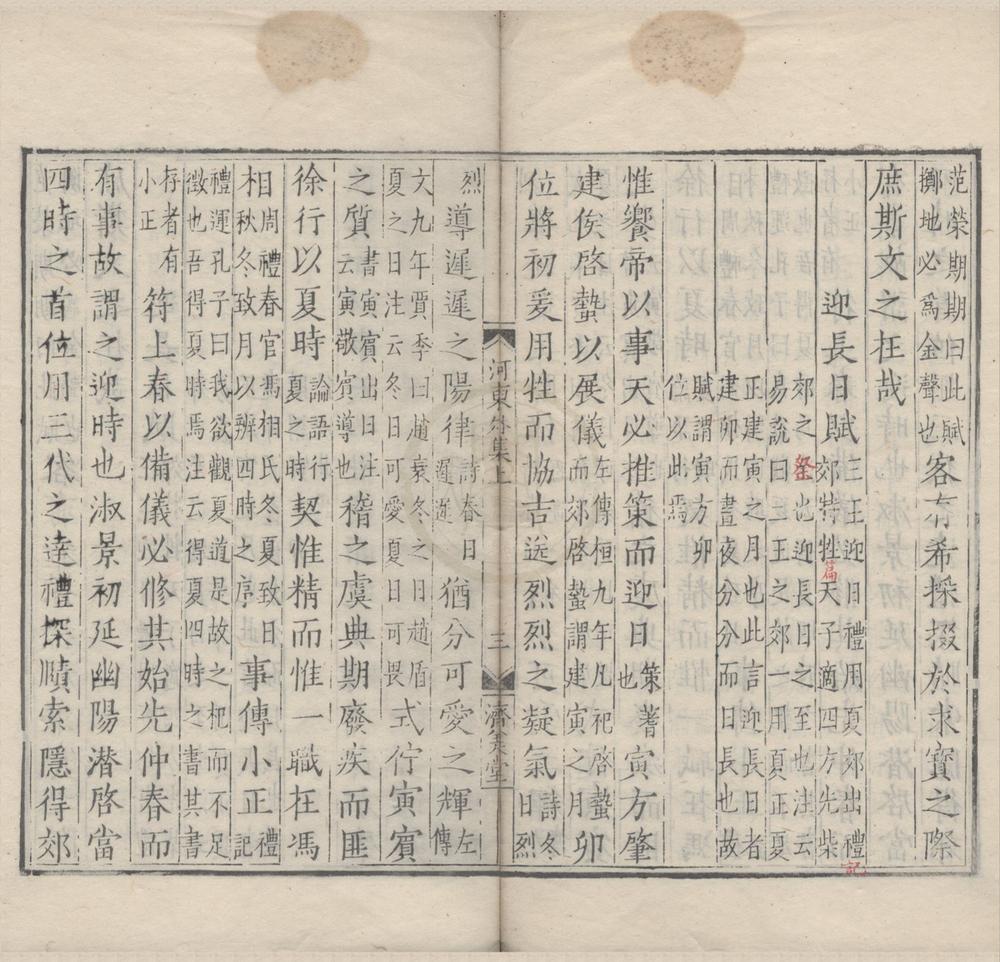 范榮期期曰此賦
擲地必為金聲也
客有希採掇於求寳之際
庶斯文之在哉
迎長日賦
三王迎日禮用夏郊出禮記
郊特牲篇天子適四方先柴
郊之祭也迎長日之至也注云
易說曰三王之郊一用夏正夏
正建寅之月也此言迎長日者
建卯而晝夜分分而日長也故
賦謂寅方卯
位以此焉
惟饗帝以事天必推策而迎日
策蓍
也
寅方肇
建俟啓蟄以展儀
左傳桓九年凡祀啓蟄
而郊啓蟄謂建寅之月
卯
位將初爰用牲而協吉送烈烈之凝氣
詩冬
日烈
河東外集上
三
濟美堂
烈
導遲遲之陽律
詩春日
遲遲
猶分可愛之輝
左
傳
文九年賈季曰趙衰冬之日趙盾
夏之日注云冬日可愛夏日可畏
式佇寅賓
之質
書寅賓出日注
云寅敬賓導也
稽之虞典期廢疾而匪
徐行以夏時
論語行
夏之時
契惟精而惟一職在馮
相
周禮春官馮相氏冬夏致日
秋冬致月以辨四時之序
事傳小正
禮
記
禮運孔子曰我欲觀夏道是故之杞而不足
徵也吾得夏時焉注云得夏四時之書其書
存者有
小正
符上春以備儀必修其始先仲春而
有事故謂之迎時也淑景初延幽陽潜啓當
四時之首位用三代之達禮探賾索隱得郊